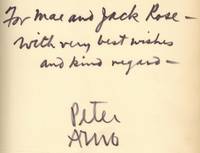 For Mae and Jack Rose –
With very best wishes
and kind regard –
Peter
Arno